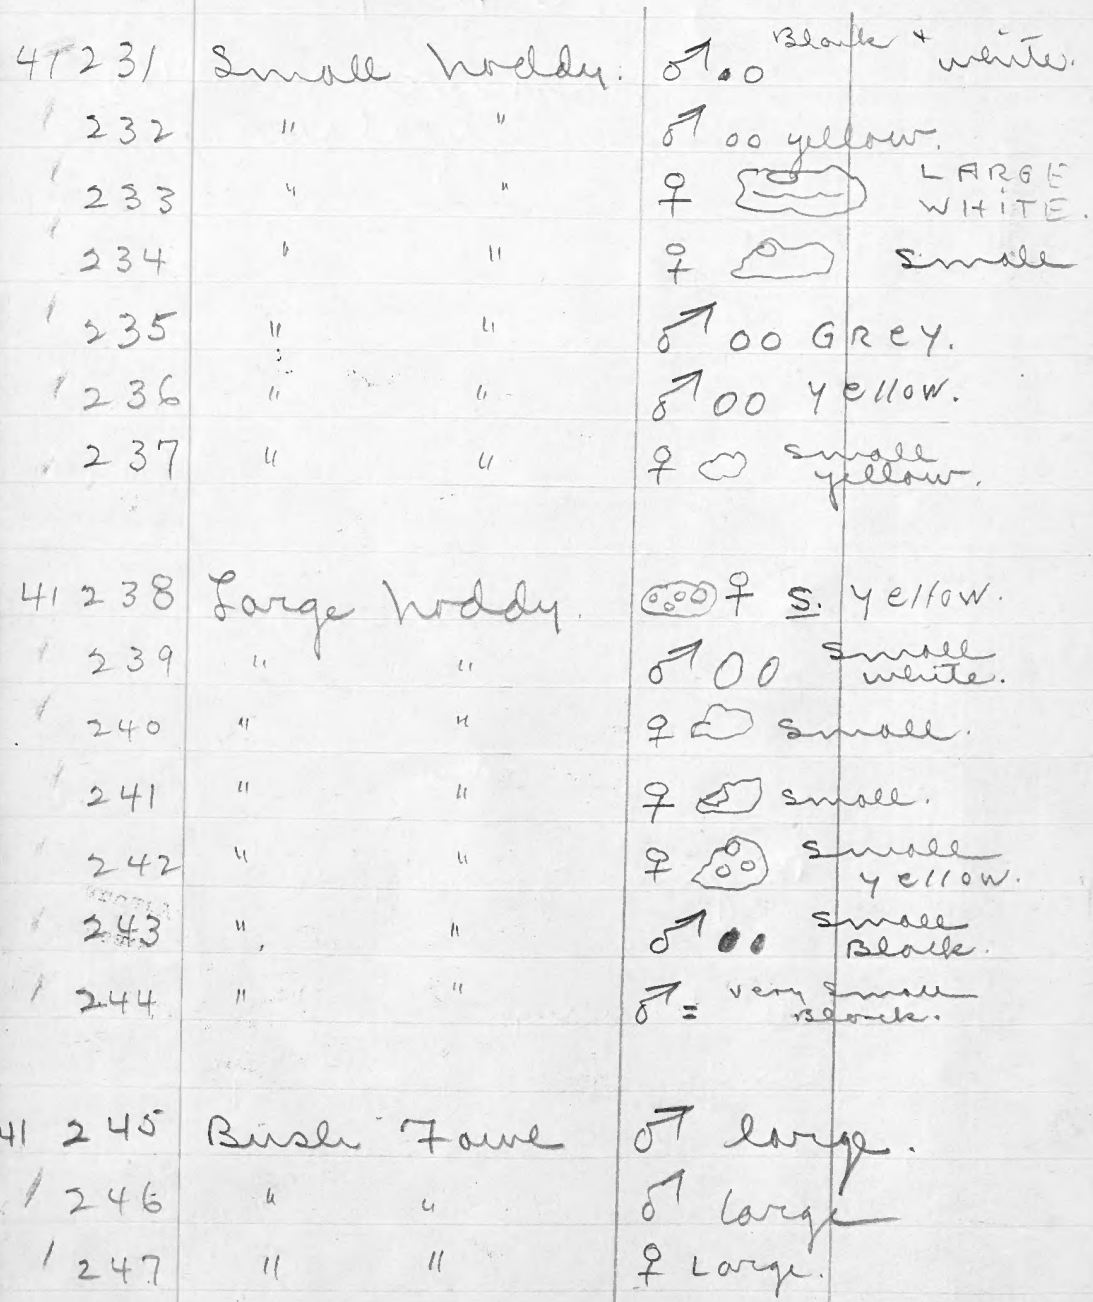 41 231 Small Noddy. ♂ Black + white.
232 " " ♂ yellow.
233 " " ♀ LARGE WHITE.
234 " " ♀ Small
235 " " ♂ GREY.
236 " " ♂ yellow.
237 " " ♀ Small yellow.
41 238 Large Noddy. ♀ S. yellow.
239 " " ♂ Small white.
240 " " ♀ Small.
241 " " ♀ Small.
242 " " ♀ Small yellow.
243 " " ♂ Small Black.
244 " " ♂ = very Small Black.
41 245 Bush Fowl ♂ large.
246 " " ♂ large
247 " " ♀ Large.